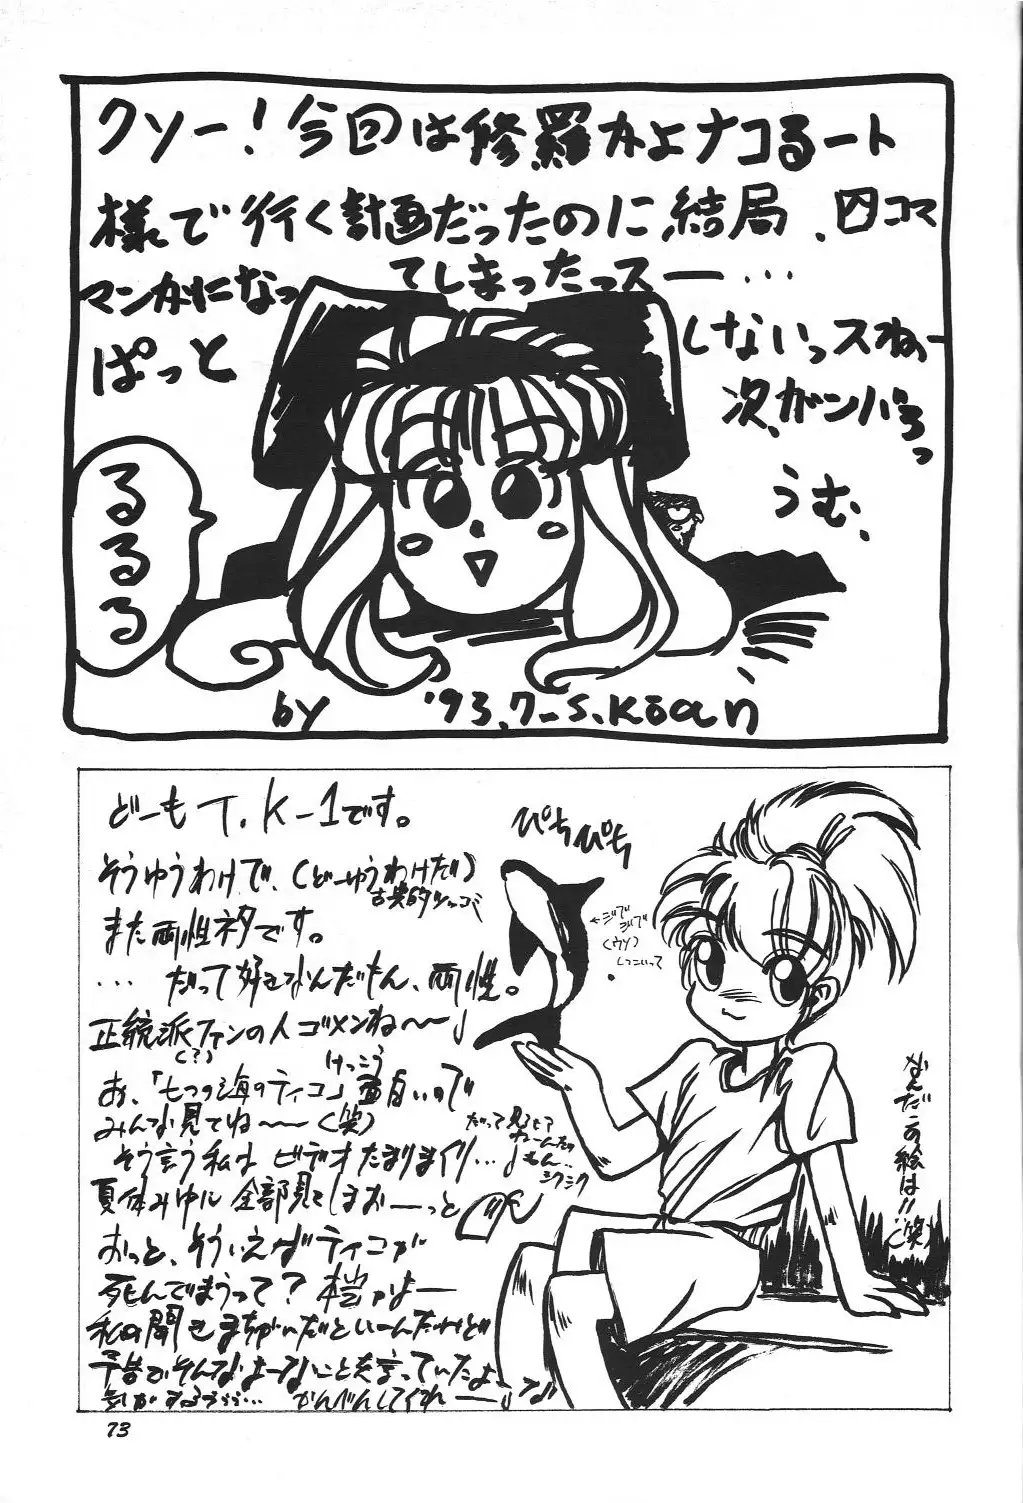 クソー!今回は修羅かよナコるート
様で行く計画だったのに、結局、四コマ
マンガになっ
てしまったっスー…
ぱっと
しないっスねぇー
次、ガンバるっ
うむ、
るるる
by '93.7- S.Kōan
どーもT.K-1です。
そうゆうわけで、(どーゆうわけだ)
古典的ツッコミ
また両性ネタです。
… だって好きなんだもん、両性。
正統派ファンの人ゴメンね〜〜♩
(?)
お、「七つの海のティコ」面白いので
けっこう
みんな見てね〜〜(笑)
そう言う私は ビデオたまりまくり…♩
だって見るヒマ
なーんだもん…
シクシク
夏休みゆル全部見てしまおーーっと
おっと、そういえばティコが
死んでまうって?本当かよー
私の聞きまちがいだといーんだけど
予告でそんなよーなことを言っていたよーな
気がするぅぅぅ… かんべんしてくれーー
ぴちぴち
←ジブジブ
(ウソ)
しつこいって
なんだこの絵は!!(笑)
73